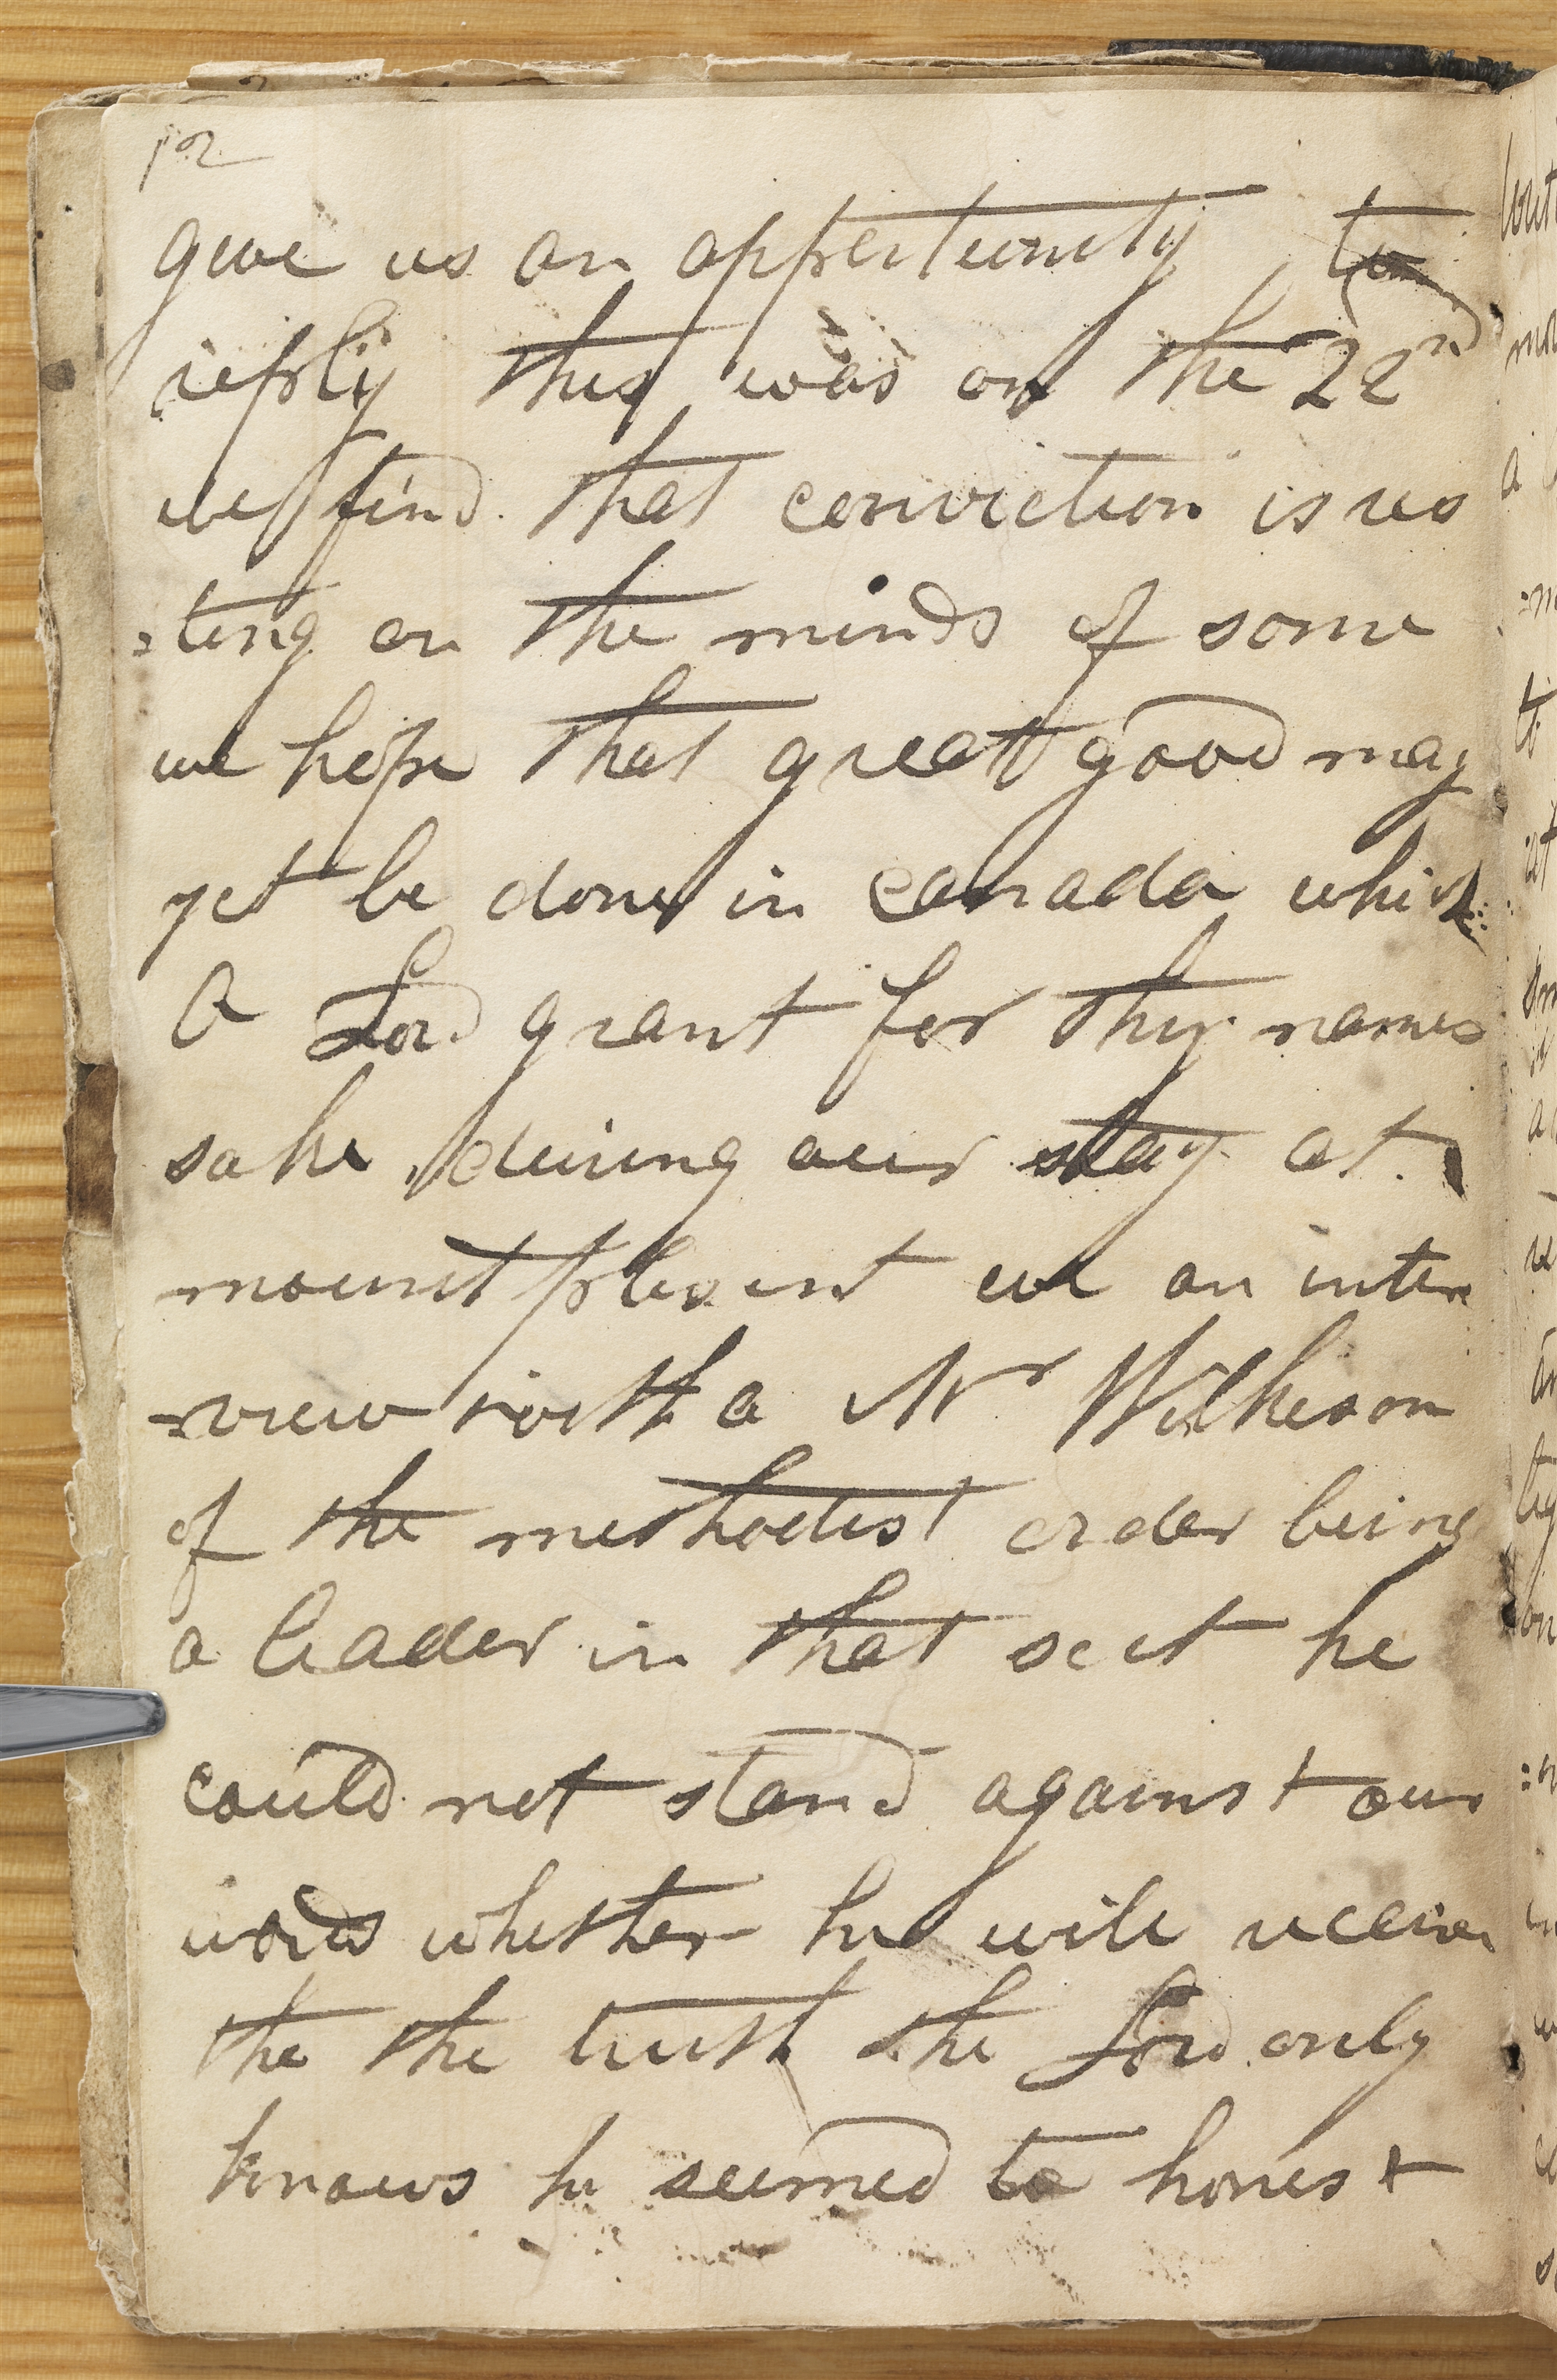 12
give us an oppertunity to
reply this was on the 22nd
we find that conviction is res
=ting on the minds of some
we hope that great good may
yet be done in canada which
O Lord grant for thy names
sake during our stay at
mount plesent we an inter
=view with a Mr Wilkeson
of the methodist order being
a leader in that sect he
could not stand against our
words whether he will receive
the the truth the Lord only
knows he seemed to honest